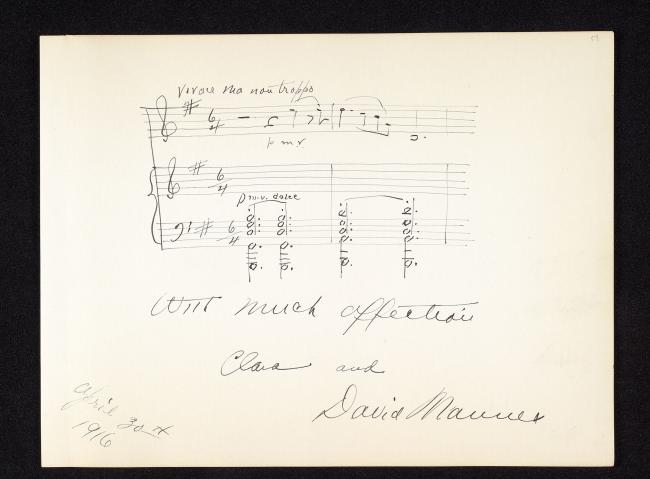 Vivace ma non troppo
6
4
p m.v.
6
4
p m.v. dolce
6
4
With much affection
Clara and
David Mannes
April 30th
1916